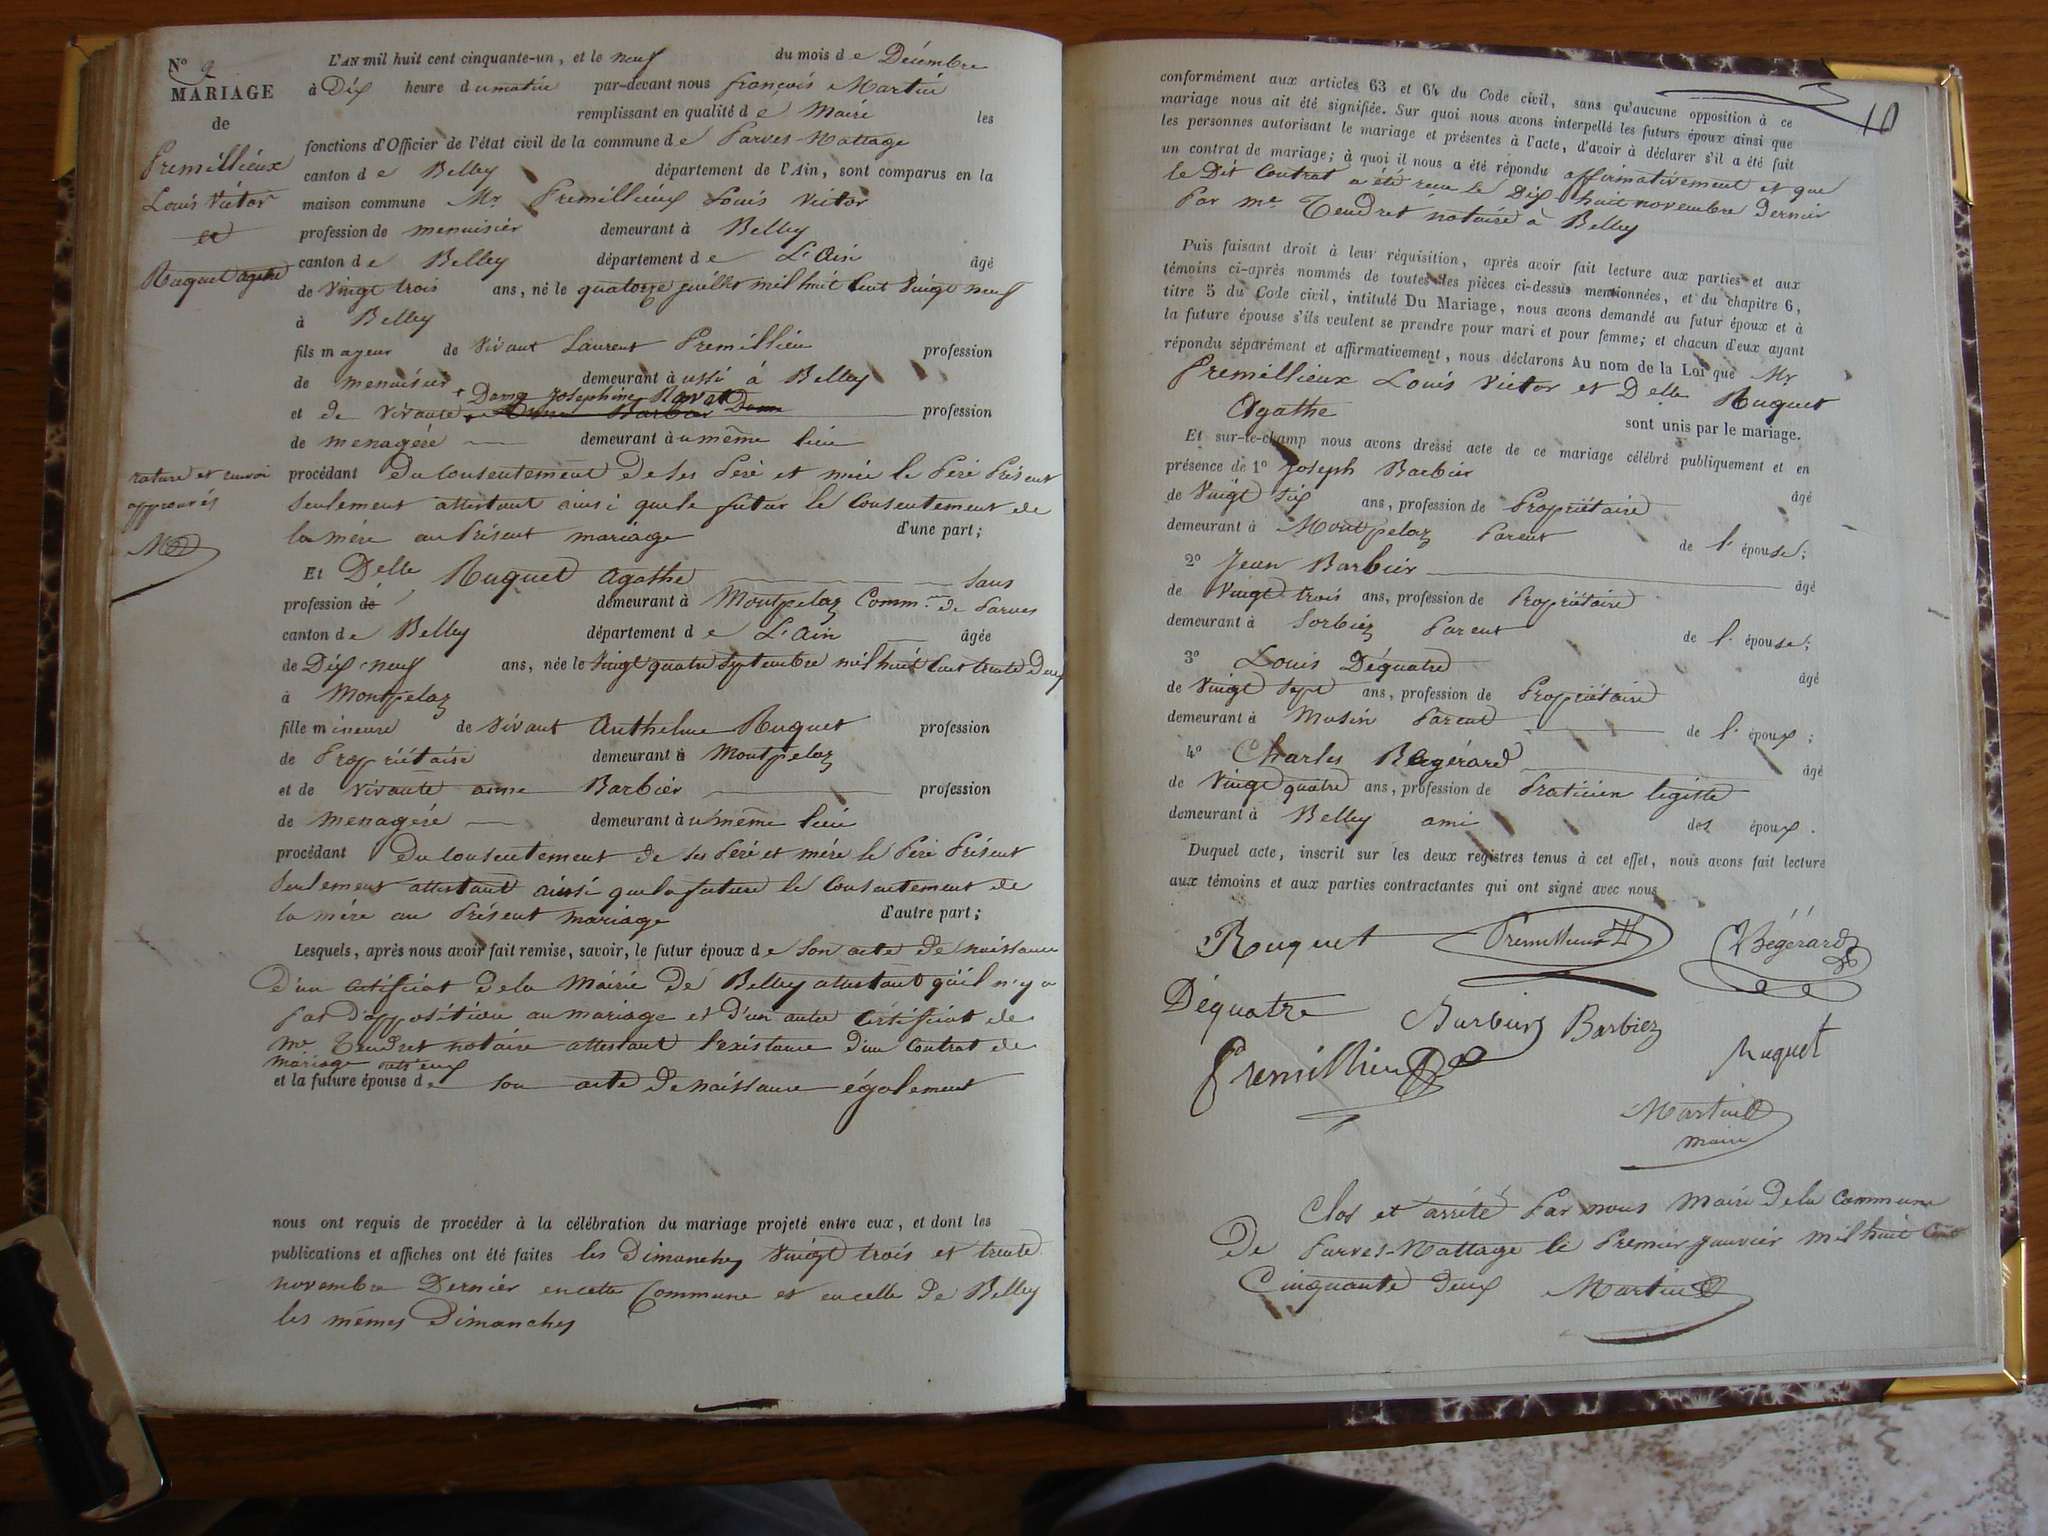 N.º 9
MARIAGE
de
Premillieux
Louis Victor
et
Ruguet agathe
rature et renvoi
approuvés
L'AN mil huit cent cinquante-un, et le neuf du mois de Décembre
à Dix heure du matin par-devant nous françois Martin
remplissant en qualité de Maire les
fonctions d'Officier de l'état civil de la commune de Parves-Nattage
canton de Belley département de l'Ain, sont comparus en la
maison commune Mr Premillieux Louis Victor
profession de menuisier demeurant à Belley
canton de Belley département de L'Ain âgé
de vingt trois ans, né le quatorze juillet mil huit Cent vingt neuf
à Belley
fils mageur de vivant Laurent Premillieu profession
de menuisier demeurant à ussi à Belley
et de vivante Dame Josephine Ravat profession
de menagère demeurant à u même lieu
procédant du consentement de ses Père et mère le Père Présent
Seulement attestant ainsi que le futur le Consentement de
la mère au Présent mariage d'une part;
Et Delle Ruguet agathe sans
profession de demeurant à Montpelaz Comm.ne de Parves
canton de Belley département de L'Ain âgée
de Dix neuf ans, née le vingt quatre Septembre mil huit Cent trente deux
à Montpelaz
fille mineure de vivant Anthelme Ruguet profession
de Propriétaire demeurant à Montpelaz
et de vivante anne Barbier profession
de menagère demeurant à u même lieu
procédant du consentement de ses Père et mère le Père Présent
Seulement attestant ainsi que la future le Consentement de
la mère au Présent mariage d'autre part;
Lesquels, après nous avoir fait remise, savoir, le futur époux de son acte de naissance
d'un certificat de la Mairie de Belley attestant qu'il n'y a
pas d'opposition au mariage et d'un autre Certificat de
me Tendret notaire attestant l'existance d'un Contrat de
mariage entr'eux
et la future épouse de son acte de naissance également
nous ont requis de procéder à la célébration du mariage projeté entre eux, et dont les
publications et affiches ont été faites les Dimanches vingt trois et trente
novembre Dernier en cette Commune et en celle de Belley
les mêmes Dimanches
10
conformément aux articles 63 et 64 du Code civil, sans qu'aucune opposition à ce
mariage nous ait été signifiée. Sur quoi nous avons interpellé les futurs époux ainsi que
les personnes autorisant le mariage et présentes à l'acte, d'avoir à déclarer s'il a été fait
un contrat de mariage; à quoi il nous a été répondu affirmativement et que
le Dit Contrat a été reçu le Dix huit novembre Dernier
Par me Tendret notaire à Belley
Puis faisant droit à leur réquisition, après avoir fait lecture aux parties et aux
témoins ci-après nommés de toutes les pièces ci-dessus mentionnées, et du chapitre 6,
titre 5 du Code civil, intitulé Du Mariage, nous avons demandé au futur époux et à
la future épouse s'ils veulent se prendre pour mari et pour femme; et chacun d'eux ayant
répondu séparément et affirmativement, nous déclarons Au nom de la Loi que Mr
Premillieux Louis Victor et Delle Ruguet
Agathe sont unis par le mariage.
Et sur-le-champ nous avons dressé acte de ce mariage célébré publiquement et en
présence de 1º Joseph Barbier âgé
de vingt six ans, profession de Propriétaire
demeurant à Montpelaz Parent de l'épouse;
2º Jean Barbier âgé
de vingt trois ans, profession de Propriétaire
demeurant à Sorbiez Parent de l'épouse;
3º Louis Déquatre âgé
de vingt sept ans, profession de Propriétaire
demeurant à Musin Parent de l'époux;
4º Charles Begérard âgé
de vingt quatre ans, profession de Praticien légiste
demeurant à Belley ami des époux.
Duquel acte, inscrit sur les deux registres tenus à cet effet, nous avons fait lecture
aux témoins et aux parties contractantes qui ont signé avec nous
Rouguet Premillieux Bégérard
Déquatre Barbier Barbiez
Premillieu Ruguet
Martin
maire
Clos et arrêté Par nous Maire de la Commune
De Parves-Nattage le Premier janvier mil huit Cent
Cinquante deux Martin